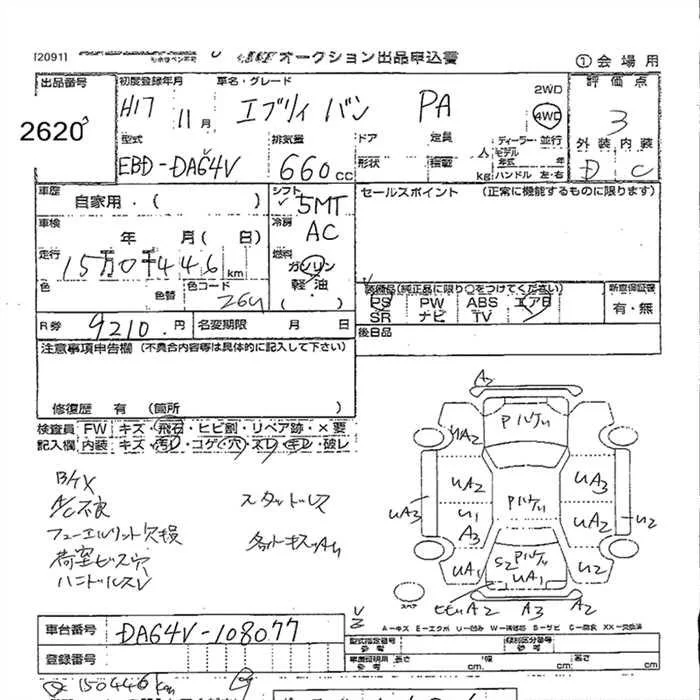 [2091]
オークション出品申込書
①会場用
出品番号
2620
初度登録年月 車名・グレード 2WD 評価点
H17 11月 エブリィ バン PA 4WD 3
型式 排気量 ドア 定員 ディーラー・並行 外装 内装
EBD-DA64V 660cc 形状 積載 人 モデル年式 年 D C
kg ハンドル 左・右
車歴 自家用・( ) シフト 5MT セールスポイント (正常に機能するものに限ります)
車検 年 月( 日) 冷房 AC
走行 15万0千446km 燃料 ガソリン
軽油
( )
色 色替 色コード 26U
装備品(純正品に限り○をつけてください) 新車保証書
PS PW ABS エアB 有・無
SR ナビ TV
R券 9210.円 名変期限 月 日 後日品
注意事項申告欄 (不具合内容等は具体的に記入して下さい)
修復歴 有 (箇所 )
検査員 FW キズ・飛石・ヒビ割・リペア跡・×要
記入欄 内装 キズ・汚レ・コゲ・穴・スレ・キレ・破レ
A/C不良 スタッドレス
フューエルリット欠損
荷室ビス穴
ハンドルスレ
A2
UA2
UA2 UA3
UA3 U1 A3 UA2 U2
UA1 S2 UA1 U2
A2 A3 A2
スペア
A-キズ E-エクボ U-凹ミ W-補修跡 S-サビ C-腐食 XX-交換済
車台番号 DA64V-108077
型式指定番号 参考 類別区分番号 参考
登録番号 車庫証明用 参考 長さ cm. 幅 cm. 高さ cm.
150446km